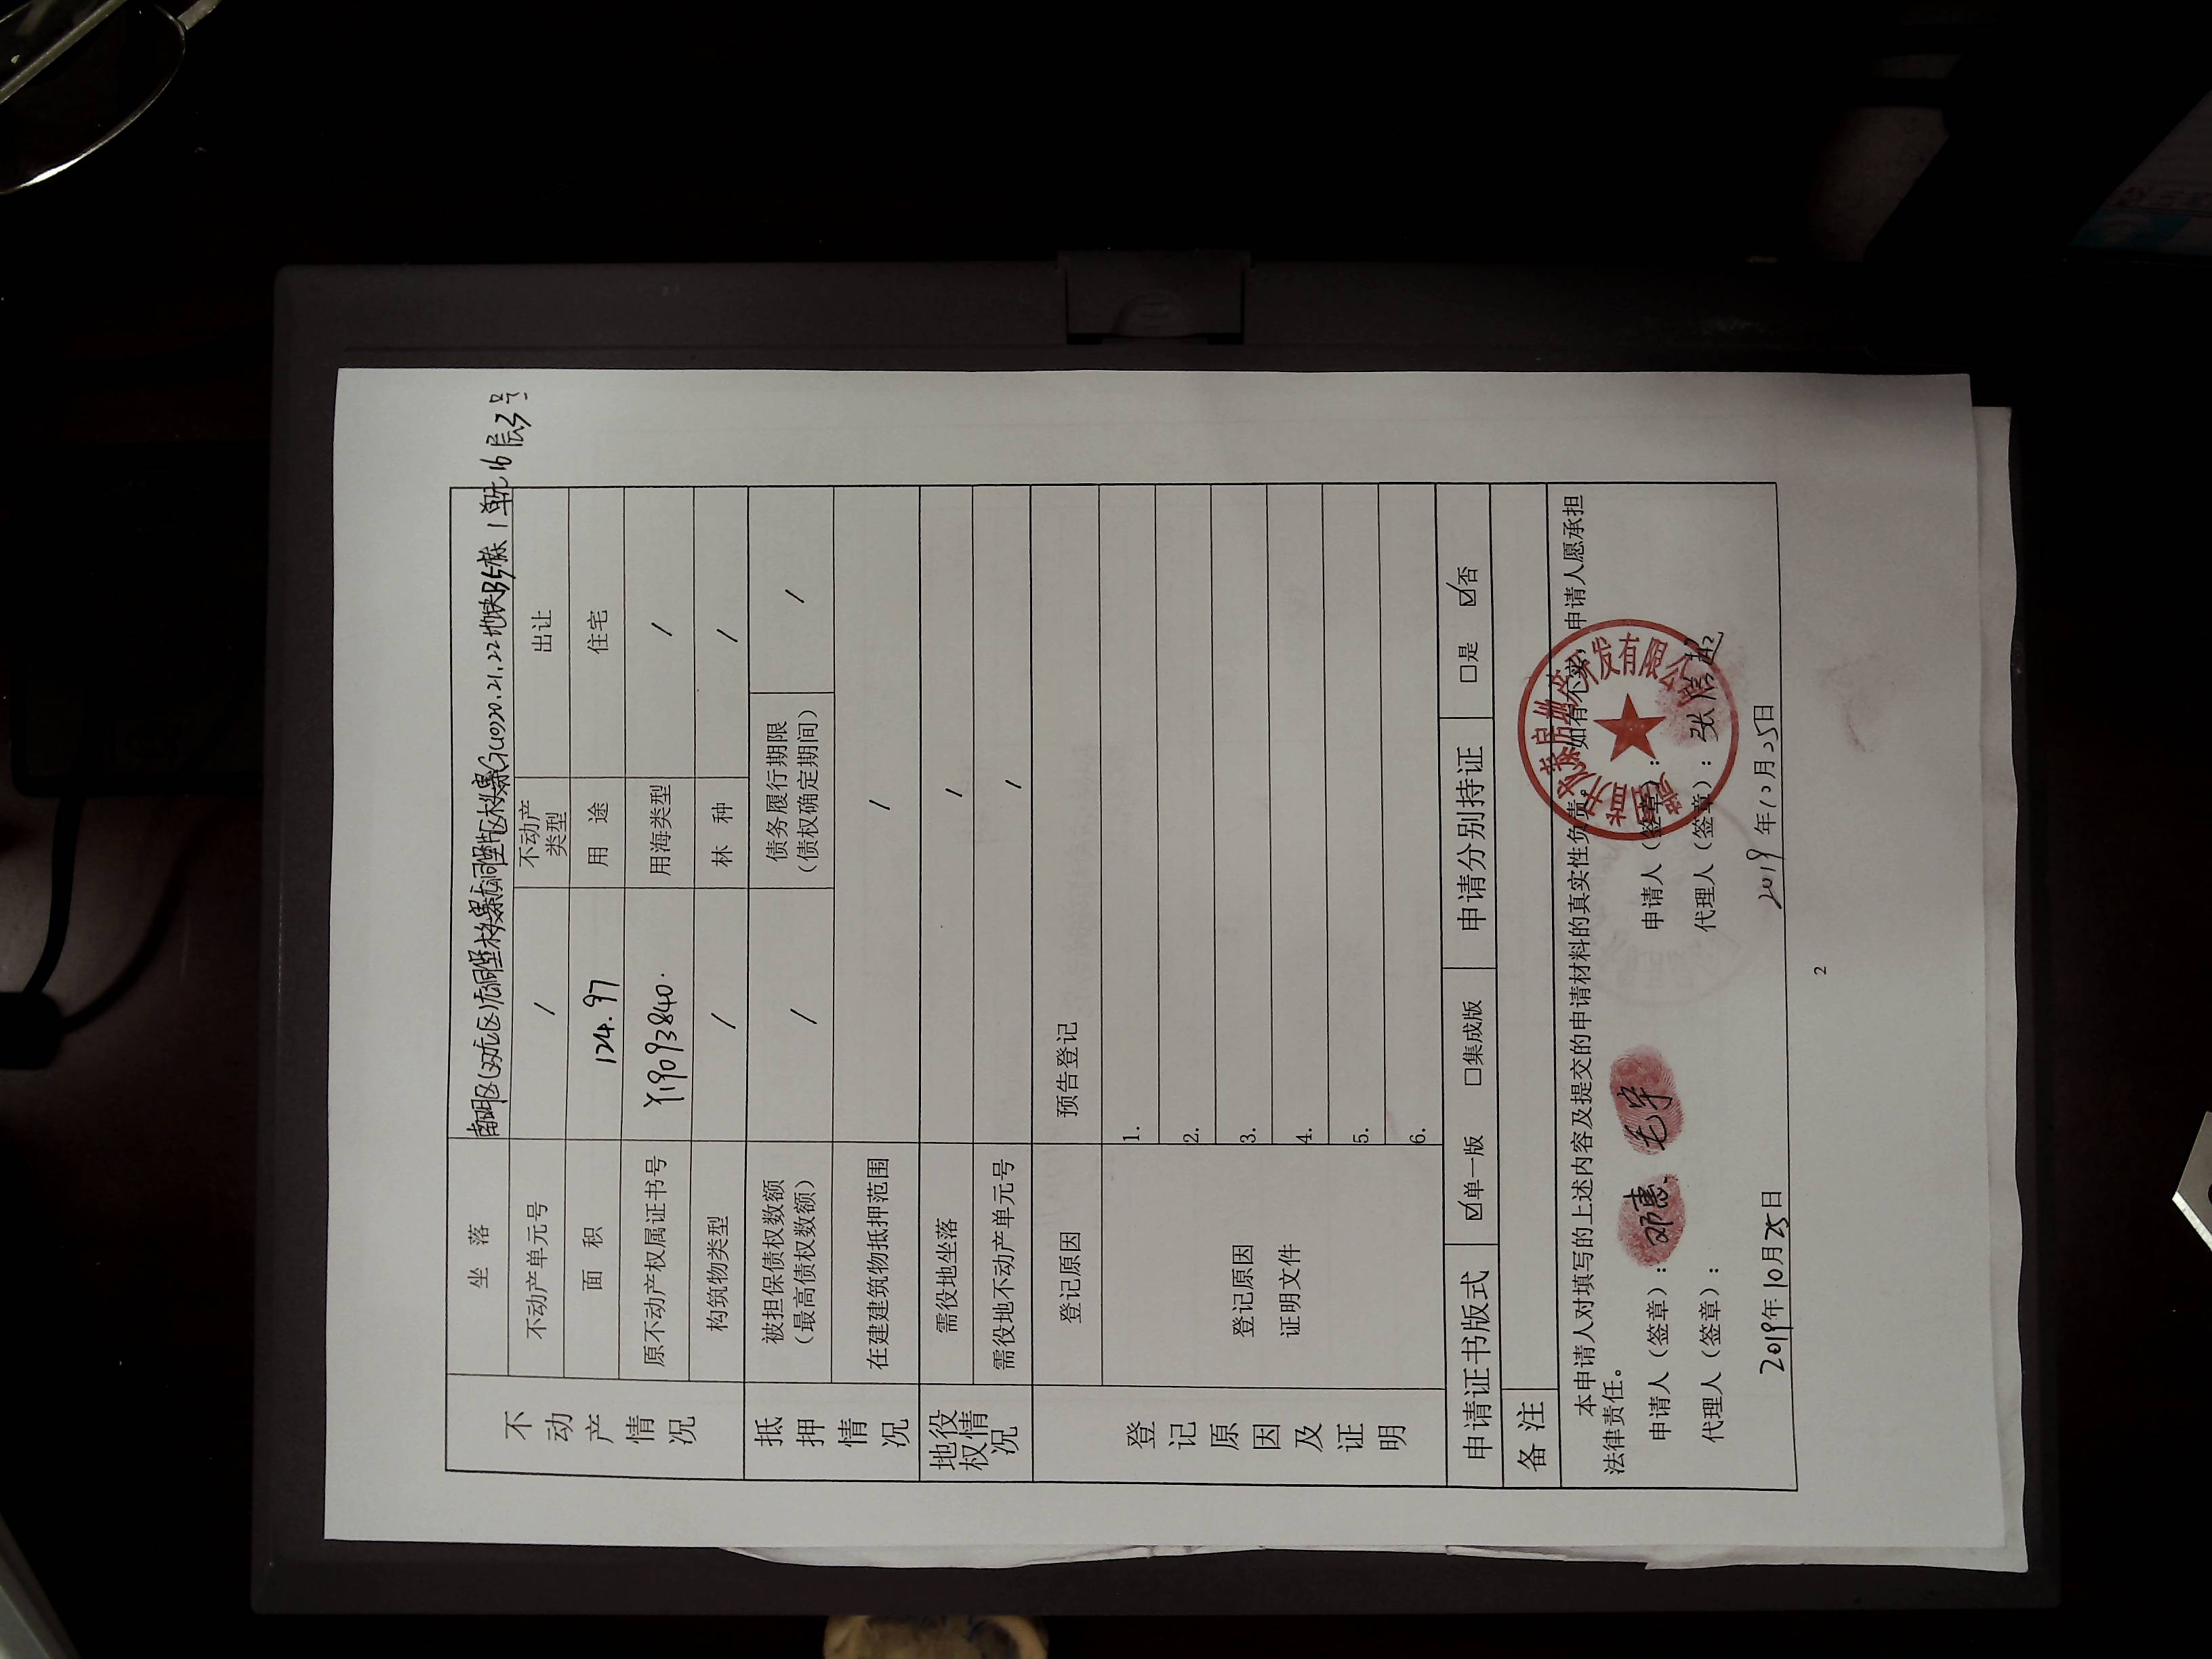 不动产情况
坐 落 南明区(双龙区)龙洞堡木头寨龙洞堡片区木头寨G(10)20.21.22地块B5栋1单元16层3号
不动产单元号 / 不动产类型 出让
面 积 124.97 用 途 住宅
原不动产权属证书号 Y19093840. 用海类型 /
构筑物类型 / 林 种 /
抵押情况
被担保债权数额（最高债权数额） / 债务履行期限（债权确定期间） /
在建建筑物抵押范围 /
地役权情况
需役地坐落 /
需役地不动产单元号 /
登记原因及证明
登记原因 预告登记
登记原因证明文件
1.
2.
3.
4.
5.
6.
申请证书版式 ☑单一版 □集成版 申请分别持证 □是 ☑否
备 注
本申请人对填写的上述内容及提交的申请材料的真实性负责。如有不实，申请人愿承担
法律责任。
申请人（签章）：邓惠 毛宇 申请人（签章）：
代理人（签章）： 代理人（签章）：张信起
贵阳首开龙泰房地产开发有限公司
2019年10月25日 2019年10月25日
2